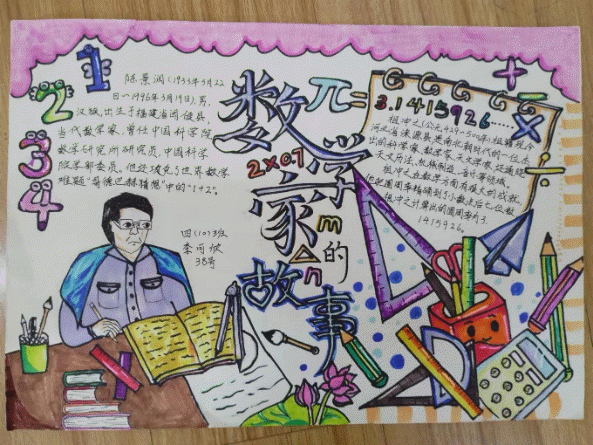 1
2
3
4
陈景润(1933年5月22
日—1996年3月19日),男,
汉族,出生于福建福州,
当代数学家,曾任中国科学院
数学研究所研究员,中国科学
院学部委员。他还攻克了世界数学
难题“哥德巴赫猜想”中的“1+2”。
四(10)班
李可欣
38号
数学家的故事
2×0.7
m
n
π=
3.1415926……
祖冲之(公元429-500年),祖籍现今
河北省涞源县,是南北朝时代的一位杰
出的科学家、数学家、天文学家,还通晓
天文历法、机械制造、音乐等领域。
祖冲之在数学方面有难大的成就,
他把圆周率精确到了小数点后七位数
祖冲之计算出的圆周率为3.
1415926。
+
-
×
÷